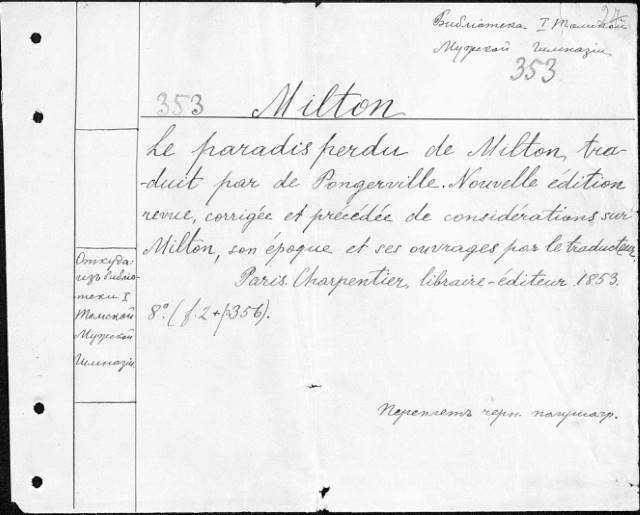 Библіотека I Томской
Мужской Гимназіи
353
353 Milton
Le paradis perdu de Milton, tra-
duit par de Pongerville. Nouvelle édition
revue, corrigée et précédée de considérations sur
Milton, son époque et ses ouvrages par le traducteur.
Paris. Charpentier, libraire-éditeur 1853.
8º. (f. 2 + p. 356).
Откуда:
изъ библіо-
теки I
Томской
Мужской
Гимназіи
Переплетъ черн. полушагр.